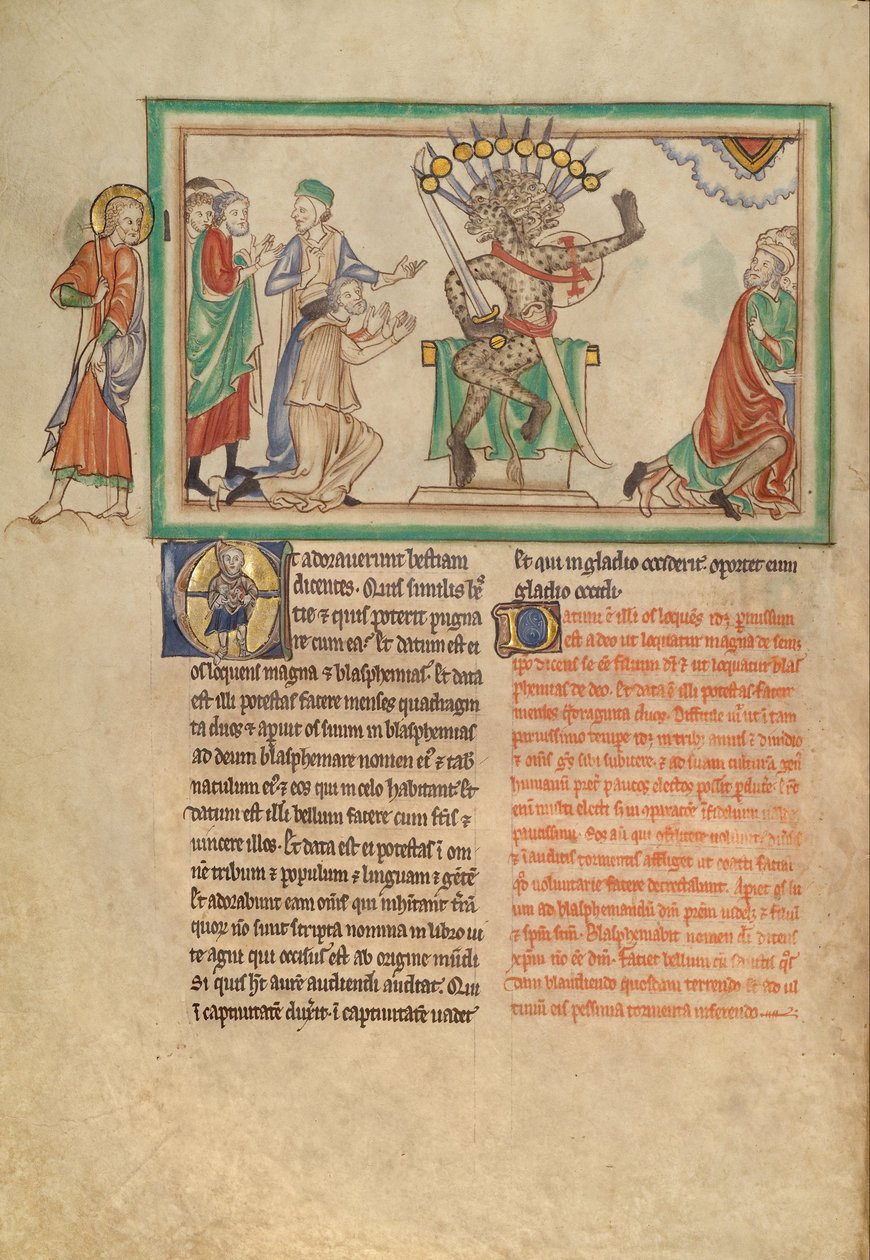 Et adoraverunt bestiam
dicentes. Quis similis bẽ
tie ⁊ quis poterit pugna
re cum ea? Et datum est ei
os loquens magna ⁊ blasphemias. Et data
est illi potestas facere menses quadragin
ta duos ⁊ aperuit os suum in blasphemias
ad deum blasphemare nomen ei᷒ ⁊ tab̾
naculum ei᷒ ⁊ eos qui in celo habitant. Et
datum est illi bellum facere cum sc̃is ⁊
uincere illos. Et data est ei potestas ĩ om
nẽ tribum ⁊ populum ⁊ linguam ⁊ gẽtẽ
Et adorabunt eam om̃s qui inhitant t̃rã
quor̃ nõ sunt scripta nomina in libro ui
te agni qui occisus est ab origine mũdi
Si quis h̃t aurẽ audiendi audiat. Qui
ĩ captiuitatẽ dux̃it. ĩ captiuitatẽ uadet
Et qui in gladio occiderit. oportet eum
gladio occidi.
Datum ẽ illi os loquẽs idẽ permissum
est a deo ut loquatur magna de semet
ipo dicens se ẽe filium dĩ ⁊ ut loquatur blas
phemias de deo. Et data ẽ illi potestas facere
menses q̃draginta duos. Difficile ut ĩ tam
paruissimo tempore idẽ in trib᷒ annis ⁊ dimidio
⁊ om̃s gẽs sibi subicere. ⁊ ad suam culturã gen᷒
humanũ pret̾ paucos electos possit
enĩ multi electi sĩ in
paucissimi. Eos aũ qui
⁊ inauditis tormentis affliget ut coacti faciant
q̃d voluntarie facere detrectabunt. Aperiet os su
um ad blasphemandũ dm̃ pr̃em ⁊ filiũ
⁊ sp̃m sc̃m. Blasphemabit nomen dĩ dicens
xp̃m nõ ẽe dm̃. Faciet bellum cũ sanctis q̃s
dam blandiendo quosdam terrendo Et ad ul
timũ eis pessima tormenta inferendo.